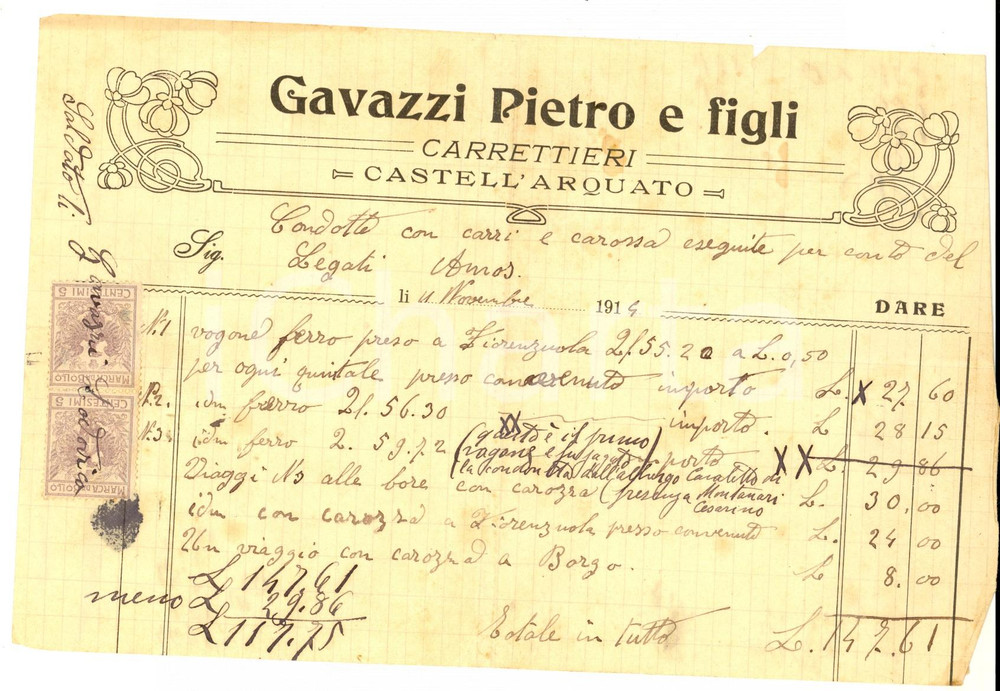 Gavazzi Pietro e figli
CARRETTIERI
CASTELL'ARQUATO
Sig. Condotte con carri e carossa eseguite per conto del
Legati Amos.
li 11 Novembre 1914 DARE
N.1 vogone ferro preso a Fiorenzuola 2l. 55.20 a L. 0,50
per ogni quintale presso convenuto importo L. X 27, 60
N.2. idm ferro 2l. 56.30 importo. L 28 15
N.3 idm ferro 2. 59.72 (questo è il primo XX importo XX L. 29 86
vagone e fu pagato
la condotta dall'albergo Cavaletto di
presenza Montanari
Cesarino
Viaggi N3 alle bore con carozza L. 30,00
idm con carozza a Fiorenzuola presso convenuto L. 24 00
Un viaggio con carozza a Borgo. L 8.00
L 147,61
meno L 29.86
L 117.75
Totale in tutto L. 147.61
Saldato li
Gavazzi Vitoria
MARCA DA BOLLO
CENTESIMI 5
MARCA DA BOLLO
CENTESIMI 5